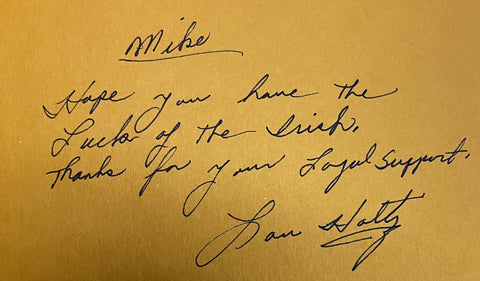 Mike
Hope you have the
Luck of the Irish.
Thanks for your Loyal Support.
Lou Holtz